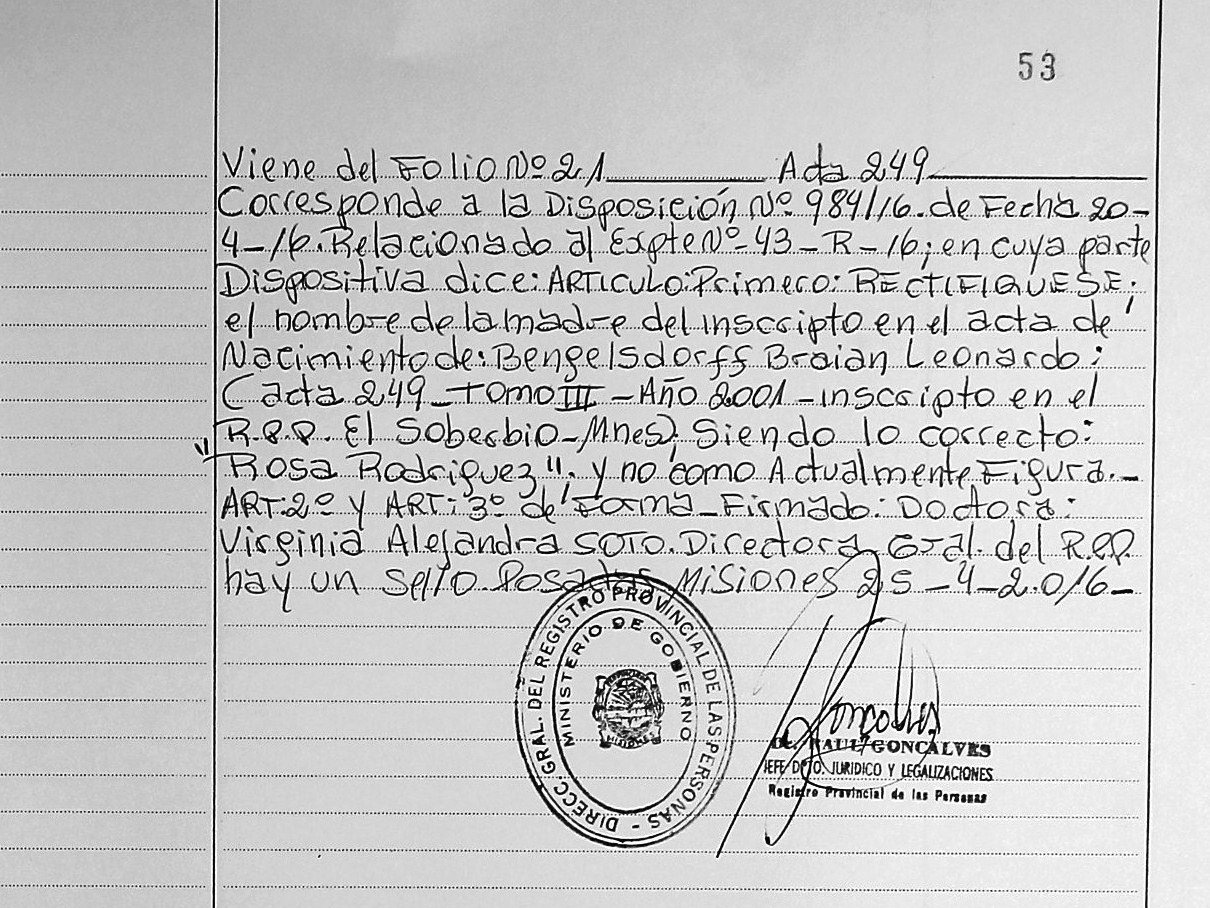 53
Viene del Folio Nº 21 Acta 249
Corresponde a la Disposición Nº 984/16. de Fecha 20-
4-16. Relacionado al Expte Nº 43-R-16; en cuya parte
Dispositiva dice: ARTICULO: Primero: RECTIFIQUESE;
el nombre de la madre del inscripto en el acta de
Nacimiento de: Bengelsdorff Braian Leonardo;
(acta 249 - Tomo III - Año 2001 - inscripto en el
R.P.P. El Soberbio - Mnes); Siendo lo correcto:
"Rosa Rodriguez"; y no como Actualmente Figura.-
ART: 2º y ART: 3º de Forma - Firmado: Doctora:
Virginia Alejandra SOTO. Directora Gral. del R.P.P.
hay un sello. Posadas Misiones 25-4-2016-
DIRECC. GRAL. DEL REGISTRO PROVINCIAL DE LAS PERSONAS -
MINISTERIO DE GOBIERNO
MISIONES
RAUL GONCALVES
JEFE DPTO. JURIDICO Y LEGALIZACIONES
Registro Provincial de las Personas